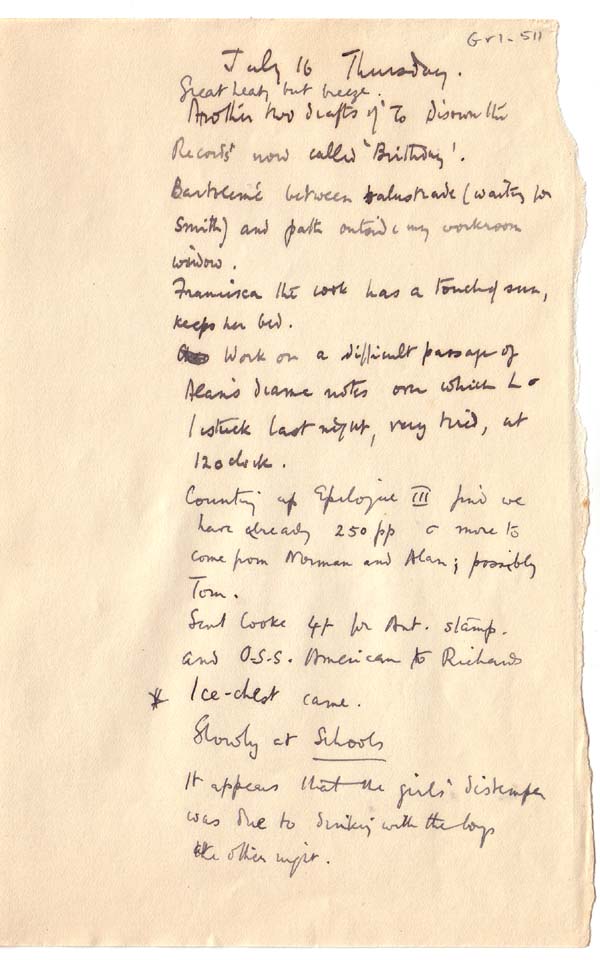 Gr1-511
July 16 Thursday.
Great heat, but breeze.
Another two drafts of 'To Disown the
Records' now called 'Birthday'.
between balustrade (waiting for
Smith) and path outside my workroom
window.
Francisca the cook has a touch of sun,
keeps her bed.
Work on a difficult passage of
Alan's drama notes over which L &
I stuck last night, very tired, at
12 o clock.
Counting up Epilogue III find we
have already 250 pp & more to
come from Norman and Alan; possibly
Tom.
Sent Cooke 4/- for Ant. stamp.
and O.S.S. American to Richards
* Ice-chest came.
Slowly at Schools
It appears that the girls' distemper
was due to drinking with the boys
the other night.